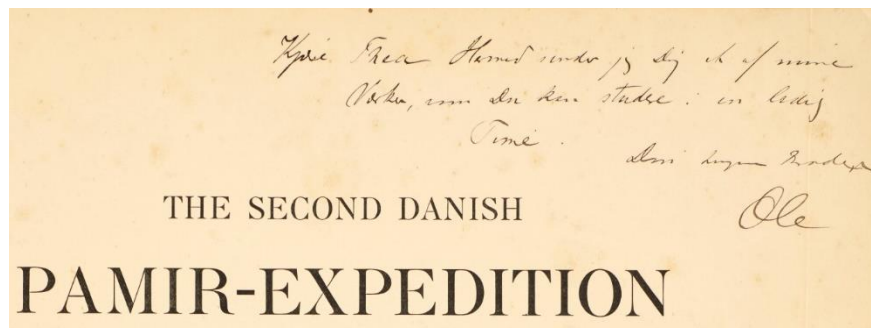 Kjære Thea Hermed sender jeg Dig et af mine
Værker, som Du kan studere i en ledig
Time.
Din Broder
Ole
THE SECOND DANISH
PAMIR-EXPEDITION